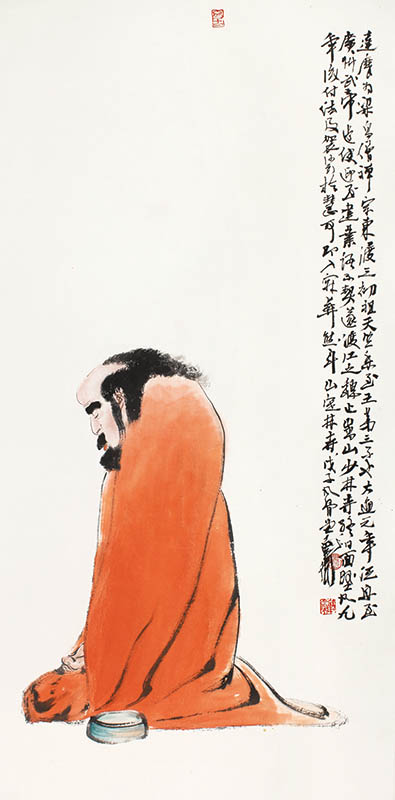 達摩为梁高僧禅宗東渡之初祖天竺香至王第三子也大通元年泛舟至
廣州武帝遣使迎至建業语不契遂渡江之魏止嵩山少林寺終日面壁九
年後付法及袈裟於慧可即入寂葬熊耳山定林寺戊子